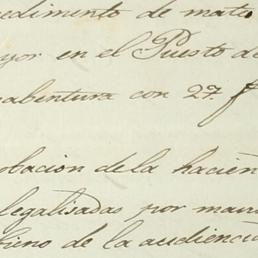 edimento de mate
yor en el Puesto de
nabentura con 27. f
obacion dela hacien
legalisadas por man
tieno de la audiencia